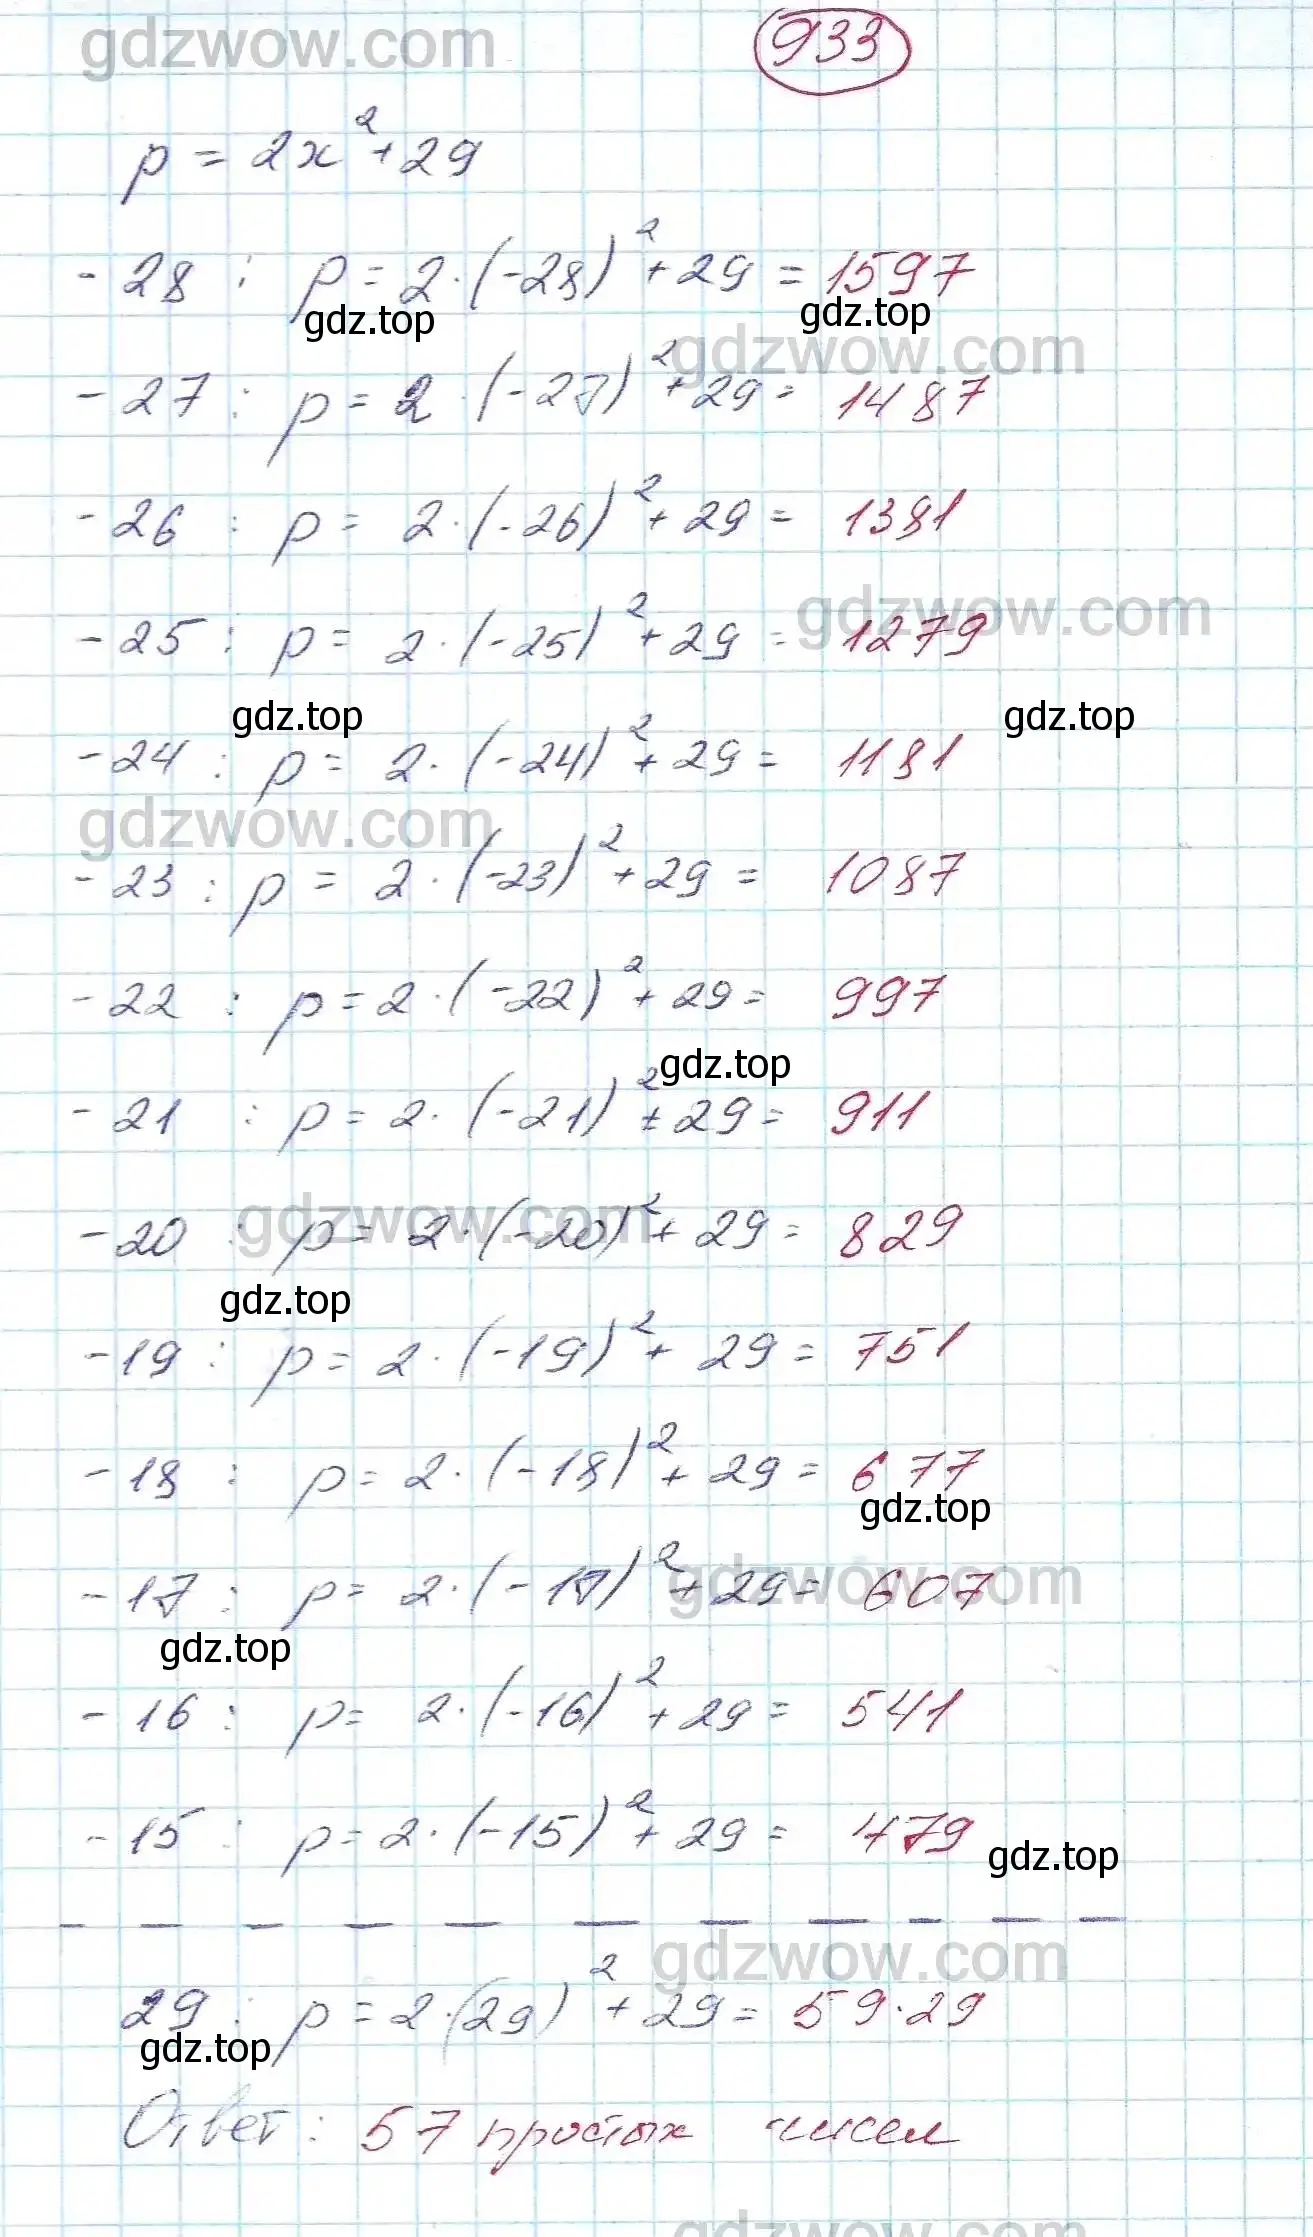 gdzwow.com
933
p = 2x² + 29
- 28 : p = 2 · (-28)² + 29 = 1597
gdz.top gdz.top
gdzwow.com
- 27 : p = 2 · (-27)² + 29 = 1487
- 26 : p = 2 · (-26)² + 29 = 1381
gdzwow.com
- 25 : p = 2 · (-25)² + 29 = 1279
gdz.top gdz.top
- 24 : p = 2 · (-24)² + 29 = 1181
gdzwow.com
- 23 : p = 2 · (-23)² + 29 = 1087
- 22 : p = 2 · (-22)² + 29 = 997
gdz.top
- 21 : p = 2 · (-21)² + 29 = 911
gdzwow.com
- 20 : p = 2 · (-20)² + 29 = 829
gdz.top
- 19 : p = 2 · (-19)² + 29 = 751
- 18 : p = 2 · (-18)² + 29 = 677
gdz.top
gdzwow.com
- 17 : p = 2 · (-17)² + 29 = 607
gdz.top
- 16 : p = 2 · (-16)² + 29 = 541
- 15 : p = 2 · (-15)² + 29 = 479
gdz.top
- - - - - - - - - - -
gdzwow.com
29 : p = 2 · (29)² + 29 = 59 · 29
gdz.top
Ответ : 57 простых чисел
gdzwow.com